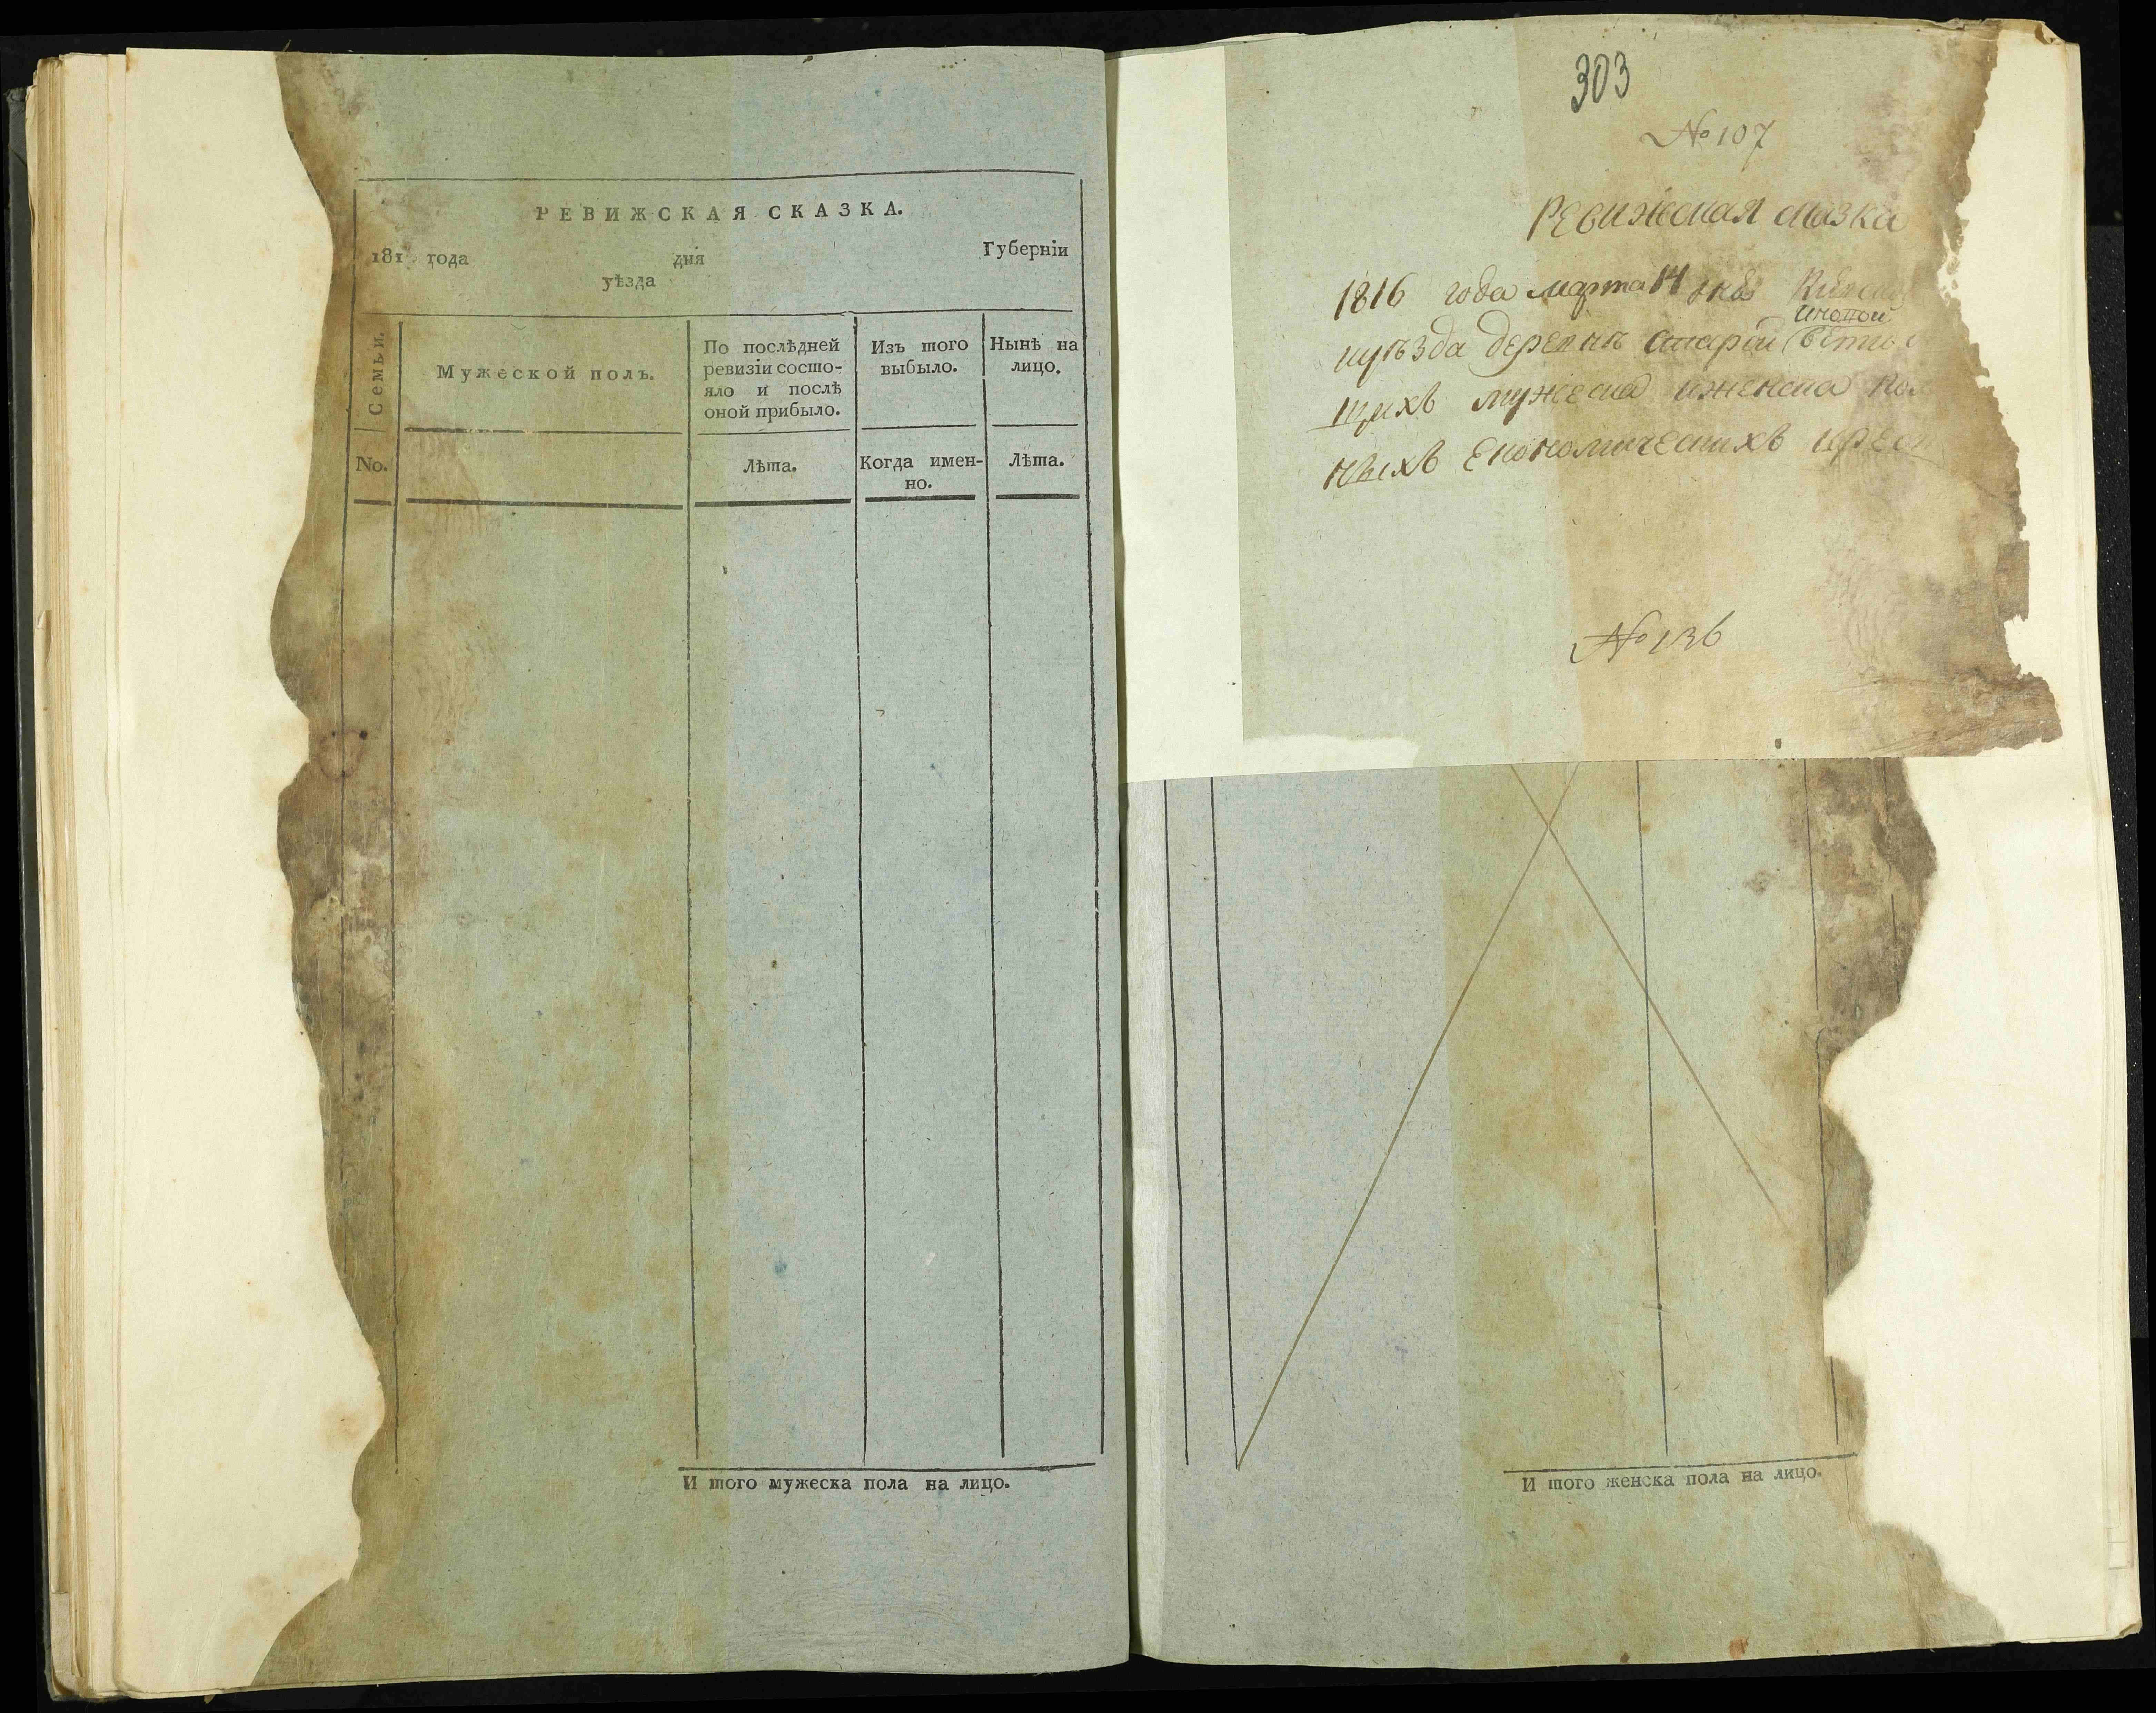 РЕВИЖСКАЯ СКАЗКА.
181 года дня Губернїи
уѣзда
Семьи.
Мужеской полъ.
По послѣдней
ревизїи состо-
яло и послѣ
оной прибыло.
Изъ того
выбыло.
Нынѣ на
лицо.
No.
Лѣта.
Когда имен-
но.
Лѣта.
И того мужеска пола на лицо.
303
№ 107
Ревижская сказка
1816 года марта 14 дня
уѣзда деревни старой
мужеска и женска
ныхъ Економическихъ крест
№ 136
И того женска пола на лицо.